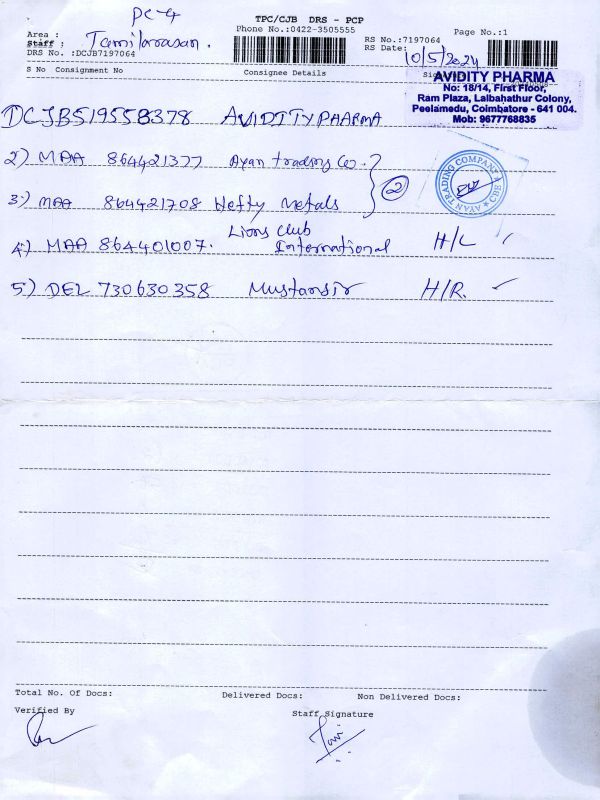 PC-4
TPC/CJB DRS - PCP
Phone No.:0422-3505555
RS No.:7197064
Page No.:1
Area :
Staff : Tamilarasan.
RS Date: 10/5/2024
DRS No. :DCJB7197064
S No Consignment No Consignee Details
AVIDITY PHARMA
No: 18/14, First Floor,
Ram Plaza, Lalbahathur Colony,
Peelamedu, Coimbatore - 641 004.
Mob: 9677768835
DCJB519558378 AVIDITYPHARMA
2) MAA 864421377 Ayan trading Co.
AYAN TRADING COMPANY ★ CBE ★
3.) MAA 864421708 Hefty Metals
2
4.) MAA 864401007. Lions Club International H/L
5.) DEL 730630358 Mustansir H/R.
Total No. Of Docs: Delivered Docs: Non Delivered Docs:
Verified By
Staff Signature